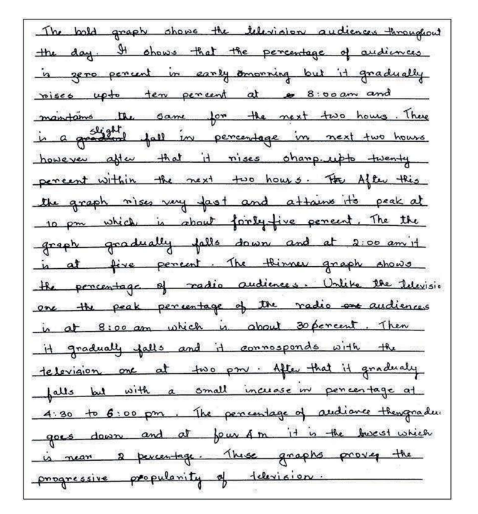 The bold graph shows the television audiences throughout
the day. It shows that the percentage of audiences
is zero percent in early morning but it gradually
rises upto ten percent at 8:00 am and
maintains the same for the next two hours. There
is a slight fall in percentage in next two hours
however after that it rises sharp upto twenty
percent within the next two hours. After this
the graph rises very fast and attains it's peak at
10 pm which is about forty-five percent. The the
graph gradually falls down and at 2:00 am it
is at five percent. The thinner graph shows
the percentage of radio audiences. Unlike the televisio
one the peak percentage of the radio audiences
is at 8:00 am which is about 30 percent. Then
it gradually falls and it corresponds with the
television one at two pm. After that it gradualy
falls but with a small increase in percentage at
4:30 to 6:00 pm. The percentage of audiance then
goes down and at four Am it is the lowest which
is near 2 percentage. These graphs proves the
progressive propularity of television.